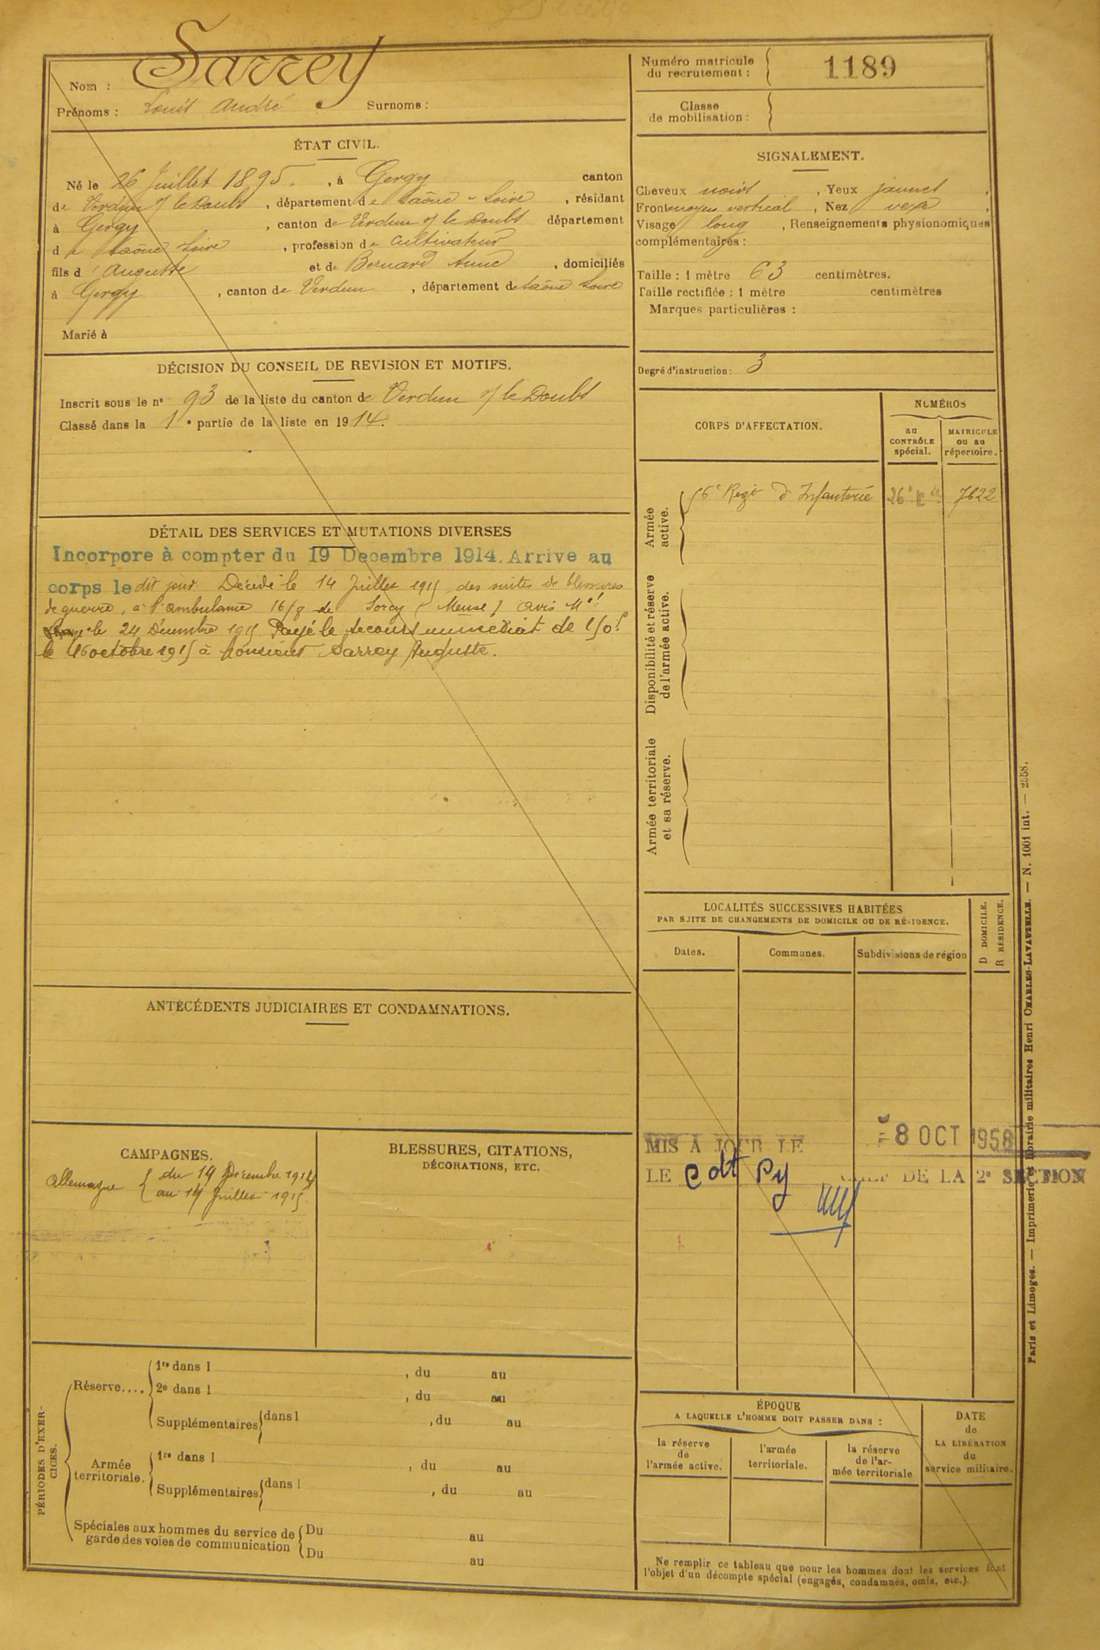 Nom : Sarrey
Prénoms : Louis André Surnoms :
Numéro matricule
du recrutement : 1189
Classe
de mobilisation :
ÉTAT CIVIL.
Né le 26 Juillet 1895. , à Gergy canton
de Verdun s/ le Doubs , département de Saône-Loire , résidant
à Gergy , canton de Verdun s/ le Doubs département
de Saône Loire , profession de Cultivateur
fils d'Auguste et de Bernard Anne , domiciliés
à Gergy , canton de Verdun , département de Saône Loire
Marié à
SIGNALEMENT.
Cheveux noirs , Yeux jaunes ,
Front moyen vertical , Nez vexe ,
Visage long , Renseignements physionomiques
complémentaires :
Taille : 1 mètre 63 centimètres.
Taille rectifiée : 1 mètre centimètres
Marques particulières :
Degré d'instruction : 3
DÉCISION DU CONSEIL DE REVISION ET MOTIFS.
Inscrit sous le n° 93 de la liste du canton de Verdun s/ le Doubs
Classé dans la 1e partie de la liste en 1914.
DÉTAIL DES SERVICES ET MUTATIONS DIVERSES
Incorpore à compter du 19 Decembre 1914. Arrive au
corps le dit jour. Décédé le 14 Juillet 1915 des suites de blessures
de guerre, à l'ambulance 16/8 de Sorcy (Meuse) avis Mel
le 24 Décembre 1915 Payé le secours immédiat de 150f
le 16 octobre 1915 à Monsieur Sarrey Auguste.
CORPS D'AFFECTATION.
NUMÉROS
au
CONTRÔLE
spécial.
MATRICULE
OU AU
répertoire.
Armée
active.
56e Régt d'Infanterie 26e 7622
Disponibilité et réserve
de l'armée active.
Armée territoriale
et sa réserve.
LOCALITÉS SUCCESSIVES HABITÉES
PAR SUITE DE CHANGEMENTS DE DOMICILE OU DE RÉSIDENCE.
Dates. Communes. Subdivisions de région
D DOMICILE.
R RÉSIDENCE.
ANTÉCÉDENTS JUDICIAIRES ET CONDAMNATIONS.
CAMPAGNES.
Allemagne { du 19 Décembre 1914
au 14 Juillet 1915
BLESSURES, CITATIONS,
DÉCORATIONS, ETC.
MIS À JOUR LE 8 OCT 1958
LE Cdt Py CHEF DE LA 2e SECTION
PÉRIODES D'EXER-
CICES.
Réserve....
1re dans l , du au
2e dans l , du au
Supplémentaires dans l , du au
Armée
territoriale.
1re dans l , du au
Supplémentaires dans l , du au
Spéciales aux hommes du service de
garde des voies de communication
Du au
Du au
ÉPOQUE
A LAQUELLE L'HOMME DOIT PASSER DANS :
la réserve
de
l'armée active.
l'armée
territoriale.
la réserve
de l'ar-
mée territoriale
DATE
de
LA LIBÉRATION
du
service militaire.
Ne remplir ce tableau que pour les hommes dont les services font
l'objet d'un décompte spécial (engagés, condamnés, omis, etc.).
Paris et Limoges. — Imprimerie et librairie militaires Henri CHARLES-LAVAUZELLE. — N. 1001 int. — 2558.